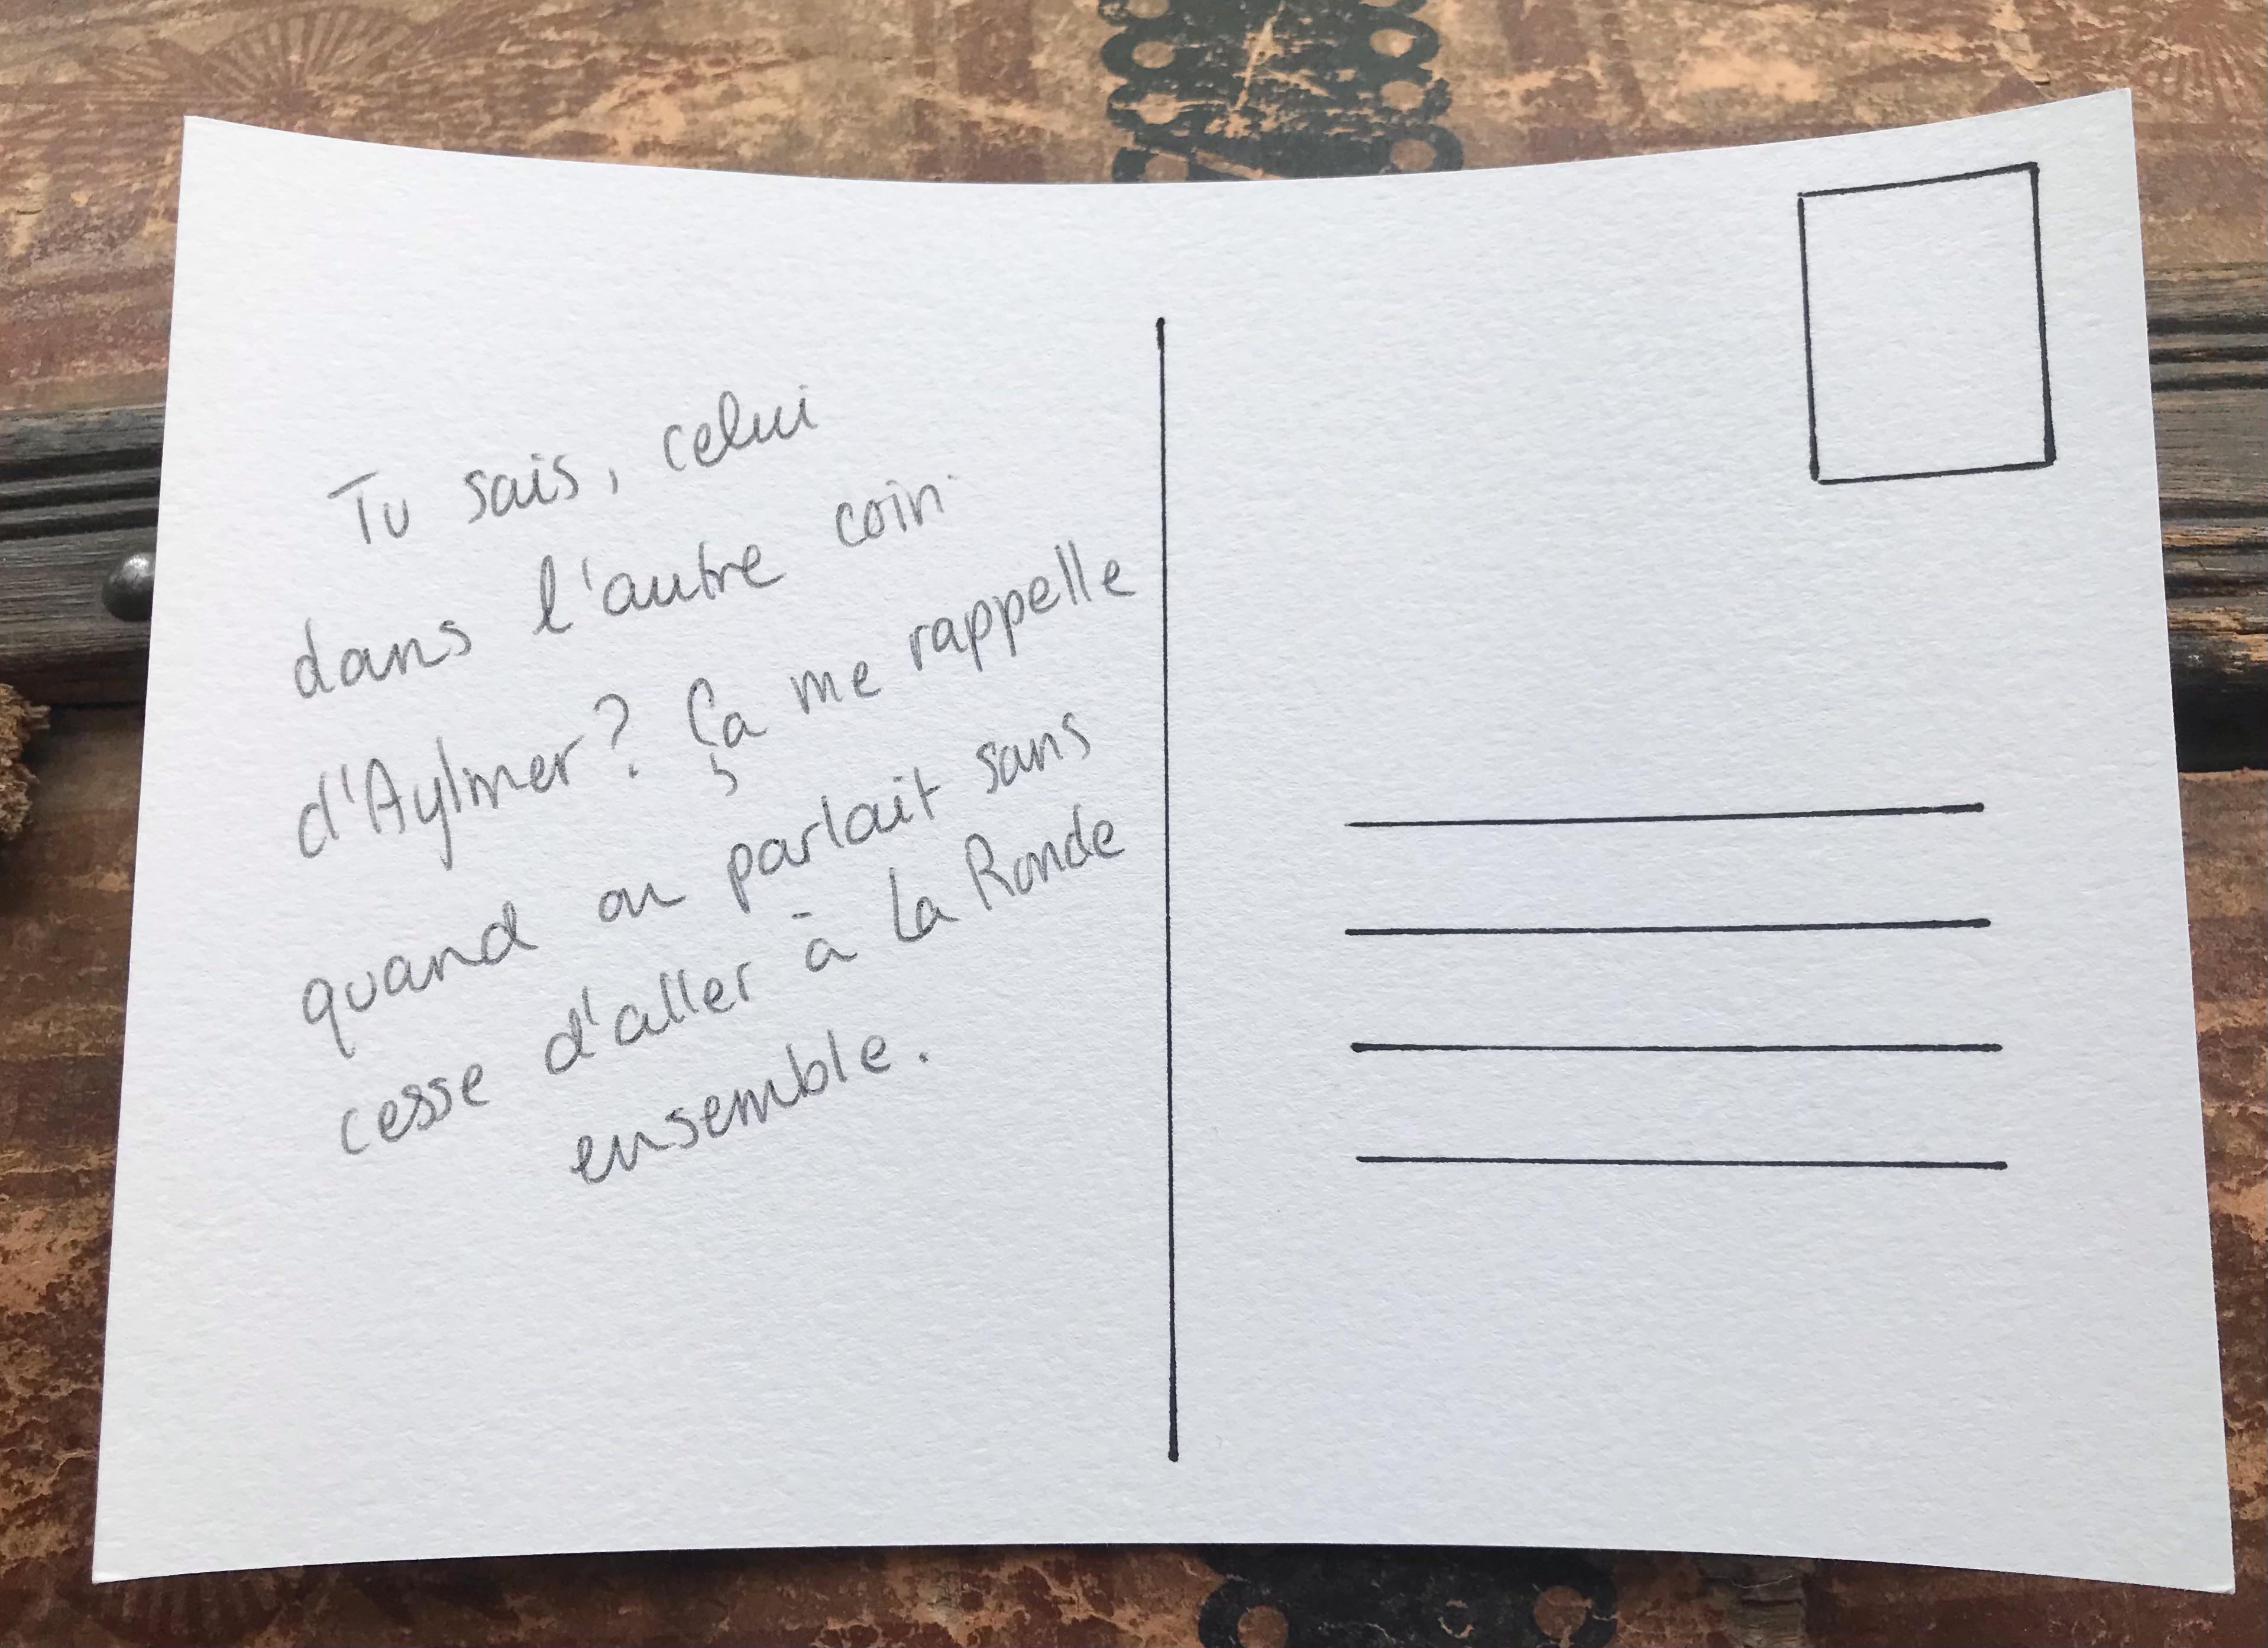 Tu sais, celui
dans l'autre coin
d'Aylmer? Ça me rappelle
quand on parlait sans
cesse d'aller à La Ronde
ensemble.